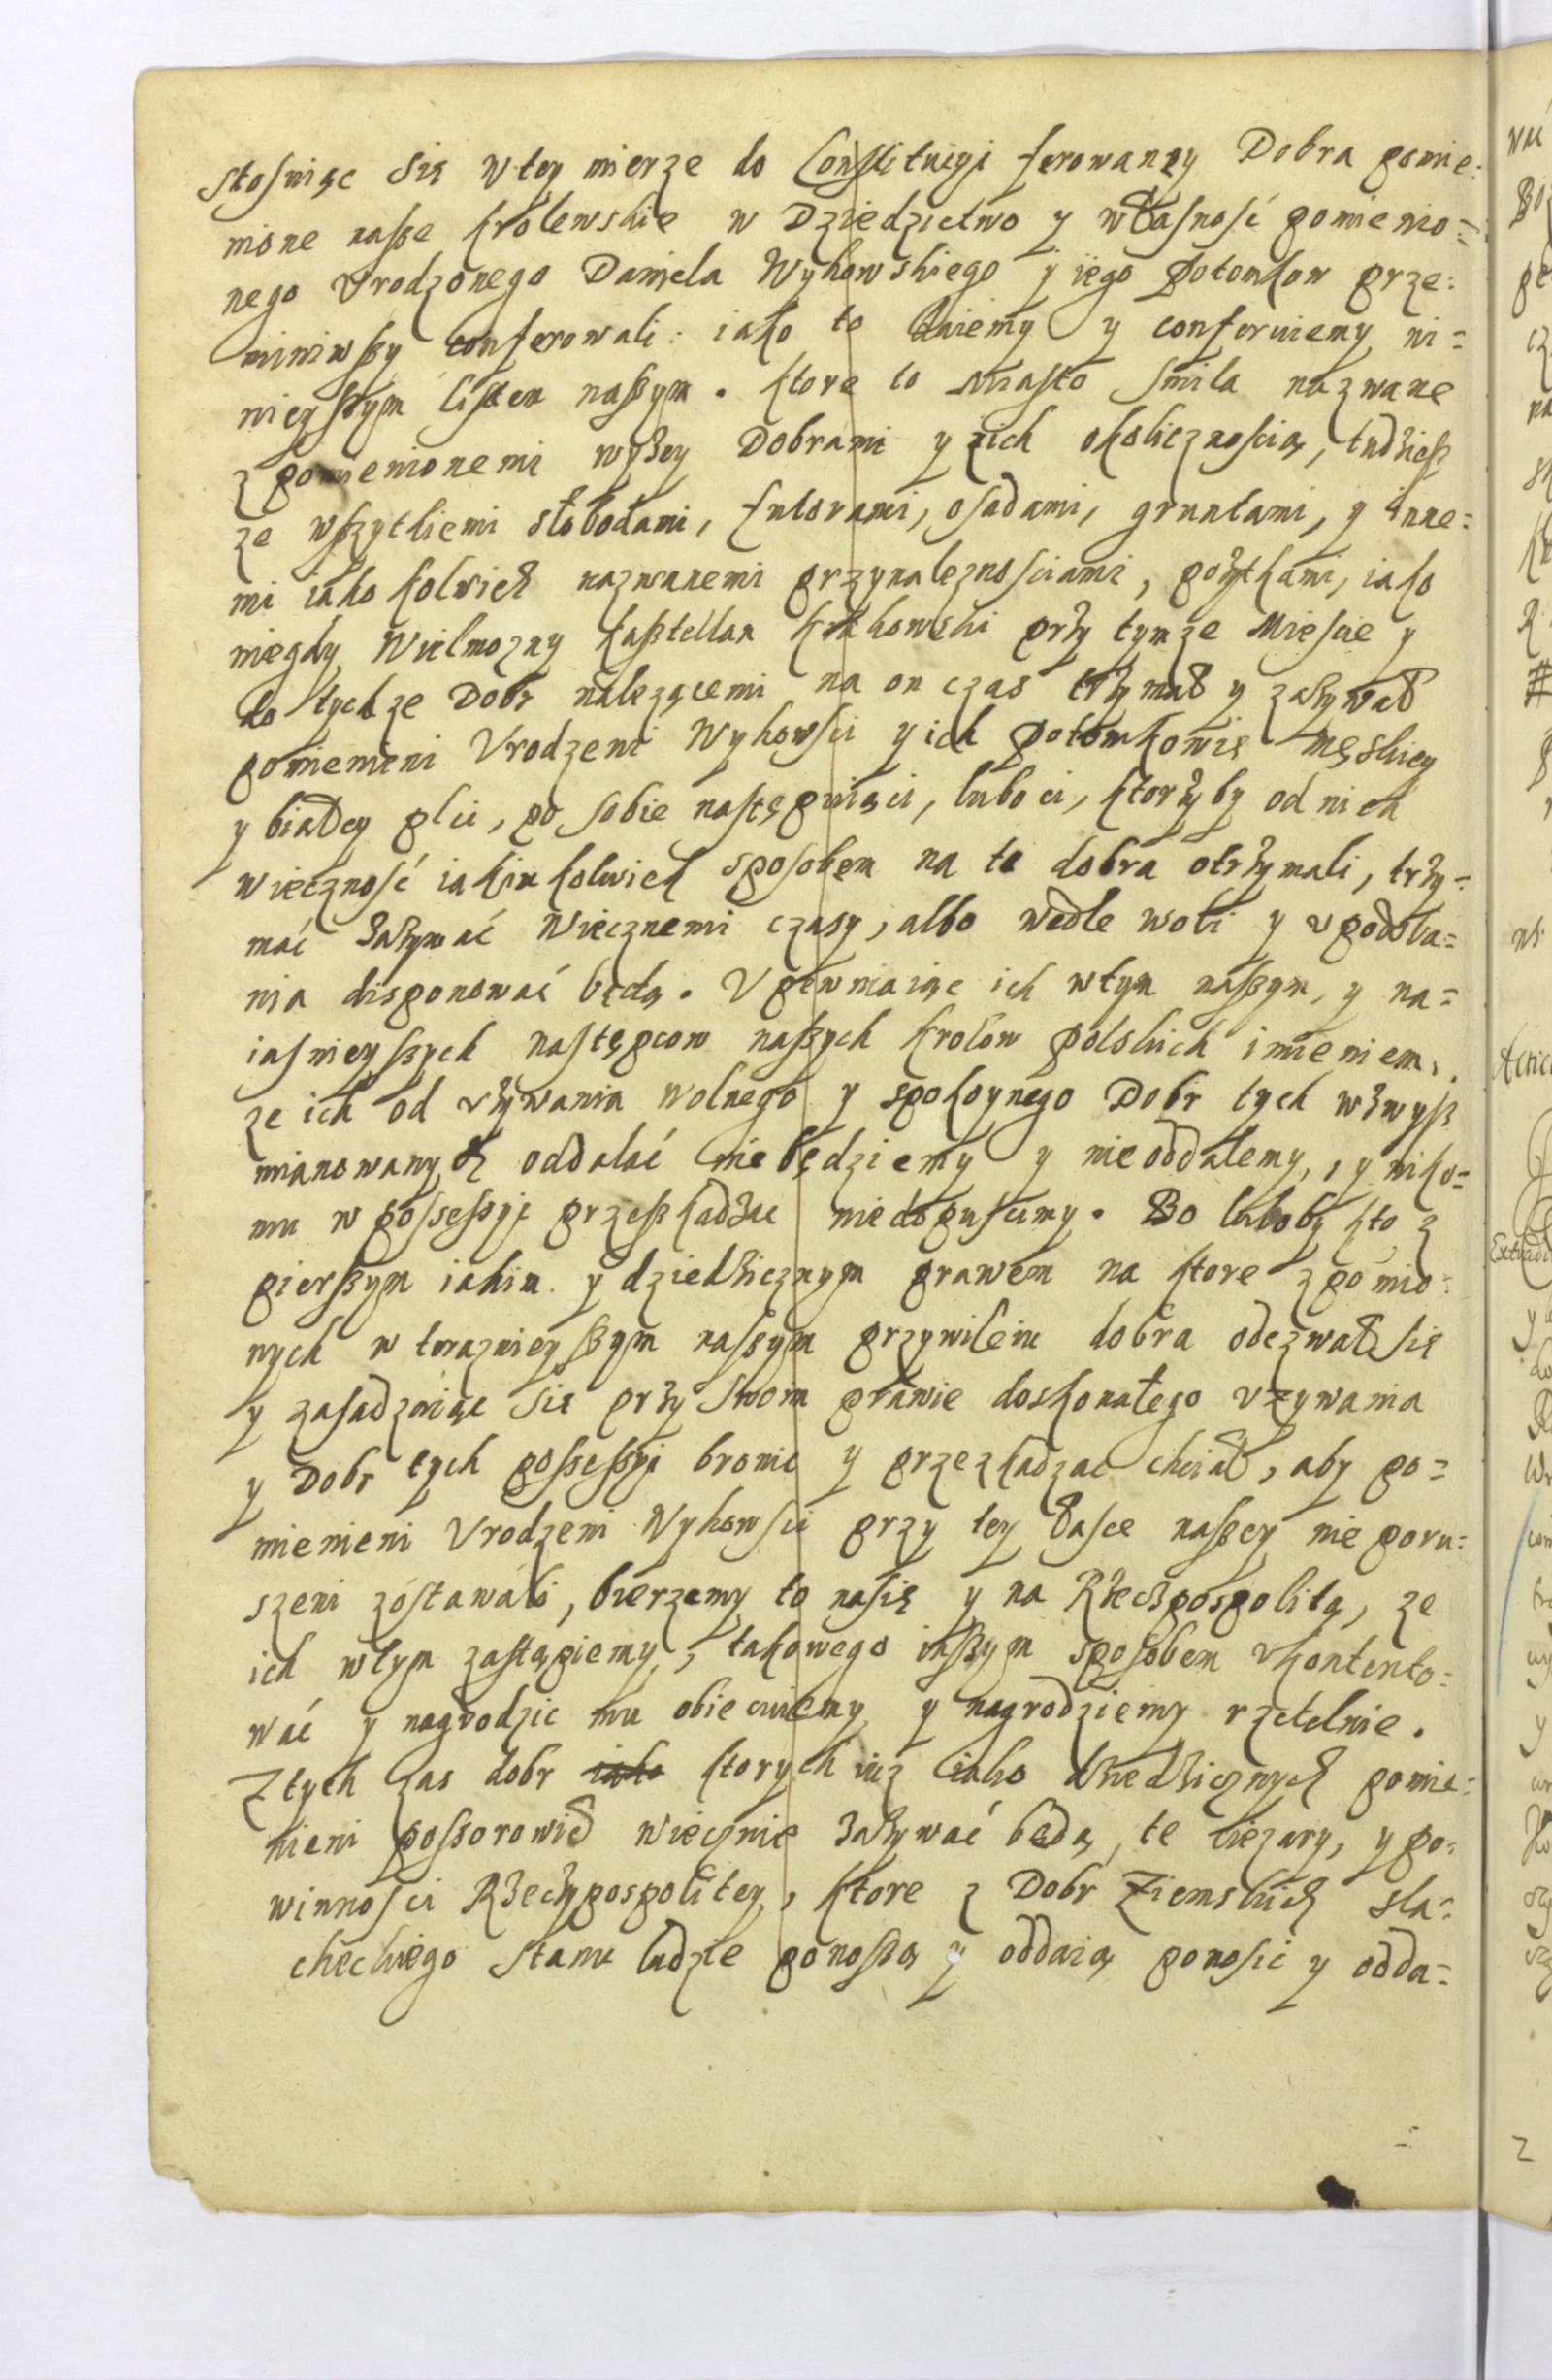 stosuiąc się w tey mierze do Constitucyi ferowaney Dobra pomie:
nione nasze Krolewskie w Dziedzictwo y własność pomienio=
nego Vrodzonego Daniela Wyhowskiego y iego Potomkow prze:
mieniwszy conferowali: iako to daiemy y conferuiemy ni=
nieyszym listem naszym. Ktore to Miasto Smila nazwane
z pomienionemi wyżey Dobrami y zich okolicznoscią, tudziesz
ze wszytkiemi słobodami, futorami, osadami, gruntami, y inne=
mi iako kolwiek nazwanemi przynaleznosciami, pożytkami, iako
niegdy Wielmozny Kasztellan Krakowski przy tymze Miescie y
do tychze Dobr nalezącemi na on czas trzymał y zażywał
pomienieni Vrodzeni Wyhowsci y ich potomkowie męskiey
y białey płci, po sobie następuiąci, lubo ci, ktorzyby od nich
wieczność iakim kolwiek sposobem na te dobra otrzymali, trzy=
mać zażywać Wiecznemi czasy, albo wedle woli y vpodoba=
nia disponować będą. Vpewniaiąc ich w tym naszym, y na=
iasnieyszych następcow naszych Krolow polskich imieniem,
ze ich od vżywania wolnego y spokoynego Dobr tych wzwysz
mianowanych oddalać nie będziemy y nie oddalemy, y niko=
mu w possessyi przeszkadzać nie dopuscimy. Bo luboby kto z
pierszym iakim y dziedzicznym prawem na ktore z pomio=
nych w teraznieyszym naszym przywileiu dobra odezwał się
y zasadzaiąc się przy swom prawie doskonałego vzywania
y Dobr tych possessyi bronic y przezkadzac chciał, aby po=
mienieni Vrodzeni Wyhowsci przy tey łasce naszey nie poru=
szeni zostawali, bierzemy to na się y na Rzeczpospolitą, ze
ich w tym zastąpiemy, takowego inszym sposobem vkontento=
wać y nagrodzić mu obiecuiemy y nagrodziemy rzetelnie.
Z tych zas dobr iako ktorych iuz iako dziedzicznych pomie=
nieni possorowie wiecznie zażywać będą, te ciezary, y po=
winności Rzeczypospolitey, ktore z Dobr Ziemskich sla=
checkiego Stanu ludzie ponoszą y oddaią ponosić y odda=